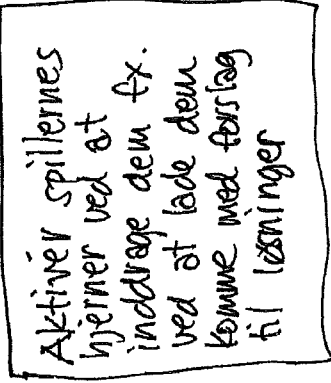 Aktivér spillernes
hjerner ved at
inddrage dem fx.
ved at lade dem
komme med forslag
til løsninger